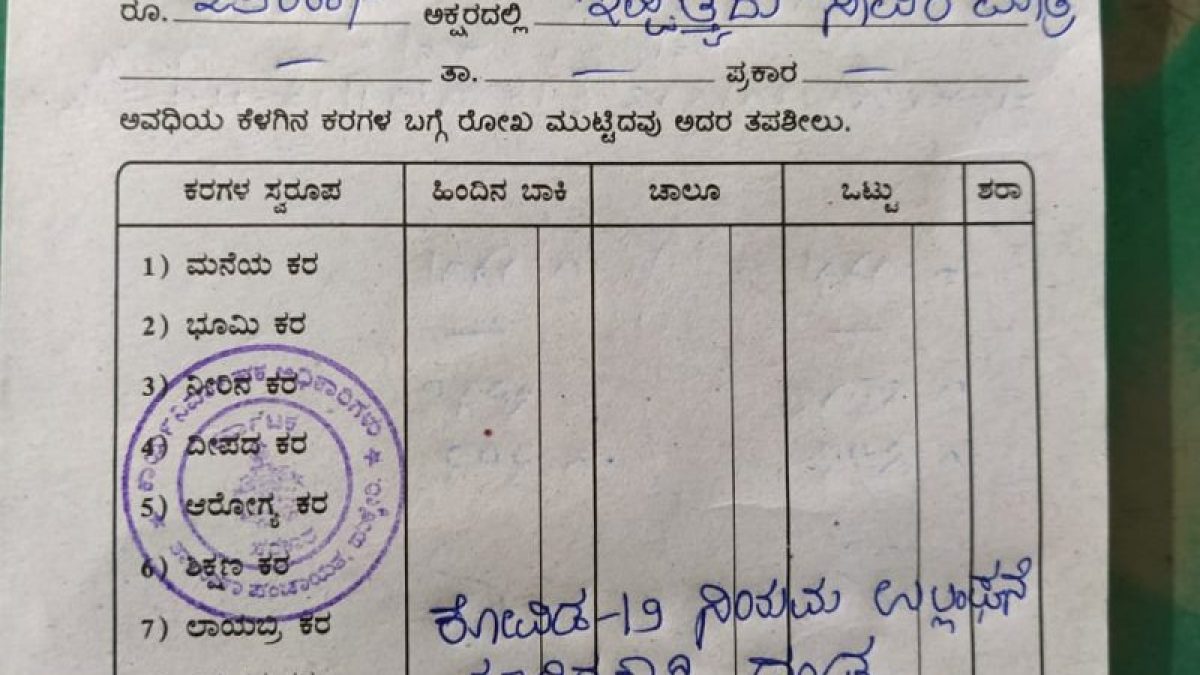 ರೂ. ಅಕ್ಷರದಲ್ಲಿ ಇಪ್ಪತ್ತೈದು ಸಾವಿರ ಮಾತ್ರ
— ತಾ. — ಪ್ರಕಾರ —
ಅವಧಿಯ ಕೆಳಗಿನ ಕರಗಳ ಬಗ್ಗೆ ರೋಖ ಮುಟ್ಟಿದವು ಅದರ ತಪಶೀಲು.
ಕರಗಳ ಸ್ವರೂಪ ಹಿಂದಿನ ಬಾಕಿ ಚಾಲೂ ಒಟ್ಟು ಶರಾ
1) ಮನೆಯ ಕರ
2) ಭೂಮಿ ಕರ
3) ನೀರಿನ ಕರ
4) ದೀಪದ ಕರ
5) ಆರೋಗ್ಯ ಕರ
6) ಶಿಕ್ಷಣ ಕರ
7) ಲಾಯಬ್ರಿ ಕರ
ಕೋವಿಡ-19 ನಿಯಮ ಉಲ್ಲಂಘನೆ
ದಂಡ